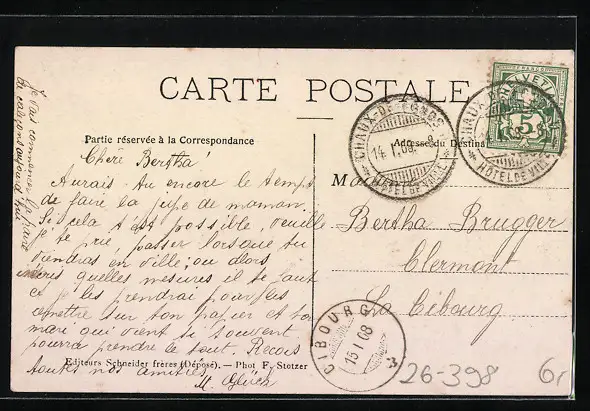 CARTE POSTALE
Partie réservée à la Correspondance
Adresse du Destina
Chère Bertha!
Aurais-tu encore le temps
de faire la jupe de maman.
Si cela t'est possible, veuille
je te prie, passer lorsque tu
viendras en ville; ou alors
quelles mesures il te faut
et je les prendrai pour les
remettre sur ton papier et ton
mari qui vient si souvent
pourra prendre le tout. Reçois
toutes nos amitiés.
Editeurs Schneider frères (Déposé). — Phot F. Stotzer
J'ai commencé
CHAUX-DE-FONDS
14.I.08. 8
HÔTEL DE VILLE
CHAUX-DE-FONDS
HÔTEL DE VILLE
HELVETIA
5
Bertha Brugger
Clermont
La Cibourg
CIBOURG
15 I 08
26-398
6,